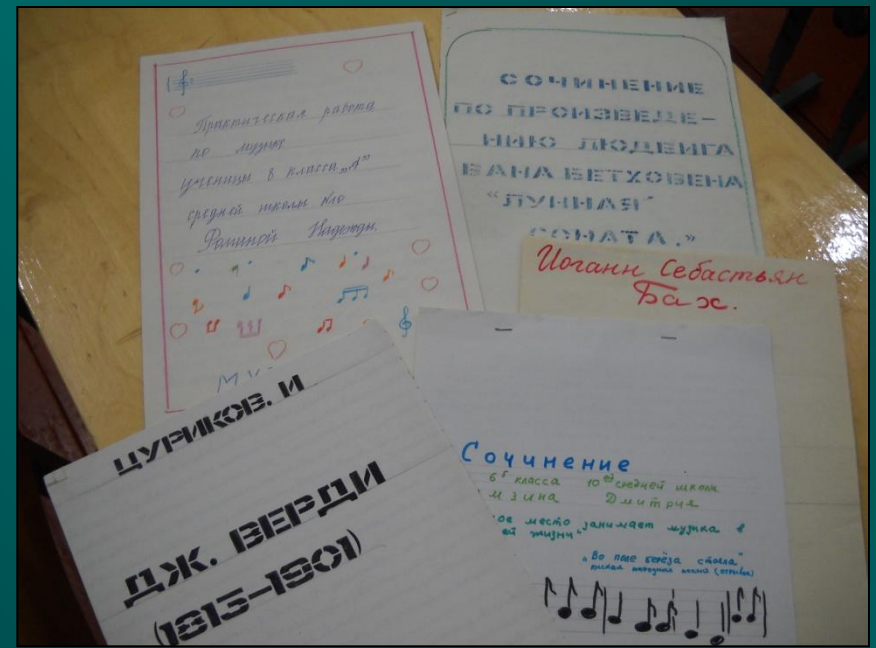 Практическая работа
по музыке
ученицы 8 класса „А"
средней школы №10
Фоминой Надежды.
СОЧИНЕНИЕ
ПО ПРОИЗВЕДЕ-
НИЮ ЛЮДВИГА
ВАНА БЕТХОВЕНА
"ЛУННАЯ"
СОНАТА."
Иоганн Себастьян
Бах.
ЦУРИКОВ. И
ДЖ. ВЕРДИ
(1813-1901)
Сочинение
6 класса 10ой средней школы
Дмитрия
место занимает музыка в
жизни"
„Во поле берёза стояла"
народная